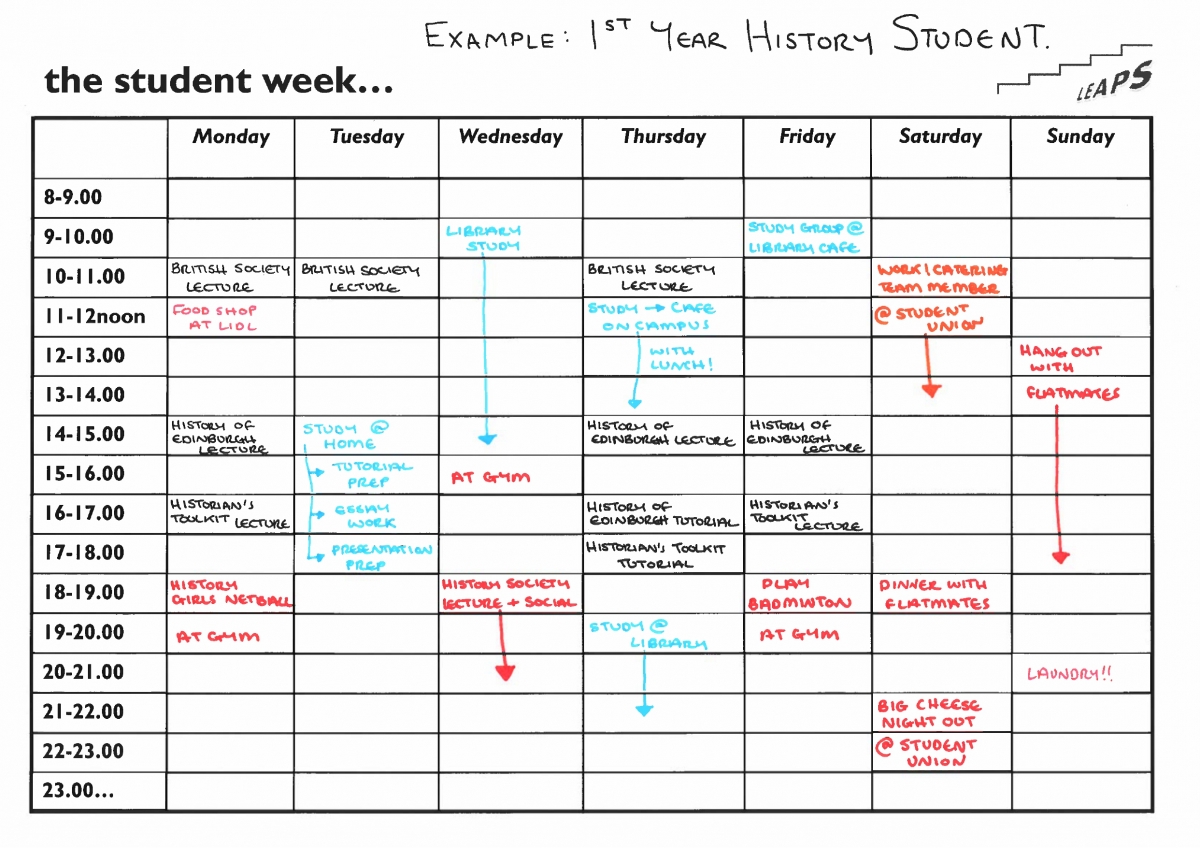 EXAMPLE: 1ST YEAR HISTORY STUDENT.
the student week...
LEAPS
Monday Tuesday Wednesday Thursday Friday Saturday Sunday
8-9.00
9-10.00
LIBRARY
STUDY
STUDY GROUP @
LIBRARY CAFE
10-11.00
BRITISH SOCIETY
LECTURE
BRITISH SOCIETY
LECTURE
BRITISH SOCIETY
LECTURE
WORK | CATERING
TEAM MEMBER
11-12noon
FOOD SHOP
AT LIDL
STUDY → CAFE
ON CAMPUS
@ STUDENT
UNION
12-13.00
WITH
LUNCH!
HANG OUT
WITH
13-14.00
FLATMATES
14-15.00
HISTORY OF
EDINBURGH
LECTURE
STUDY @
HOME
HISTORY OF
EDINBURGH LECTURE
HISTORY OF
EDINBURGH
LECTURE
15-16.00
TUTORIAL
PREP
AT GYM
16-17.00
HISTORIAN'S
TOOLKIT LECTURE
ESSAY
WORK
HISTORY OF
EDINBURGH TUTORIAL
HISTORIAN'S
TOOLKIT
LECTURE
17-18.00
PRESENTATION
PREP
HISTORIAN'S TOOLKIT
TUTORIAL
18-19.00
HISTORY
GIRLS NETBALL
HISTORY SOCIETY
LECTURE + SOCIAL
PLAY
BADMINTON
DINNER WITH
FLATMATES
19-20.00
AT GYM
STUDY @
LIBRARY
AT GYM
20-21.00
LAUNDRY!!
21-22.00
BIG CHEESE
NIGHT OUT
22-23.00
@ STUDENT
UNION
23.00...